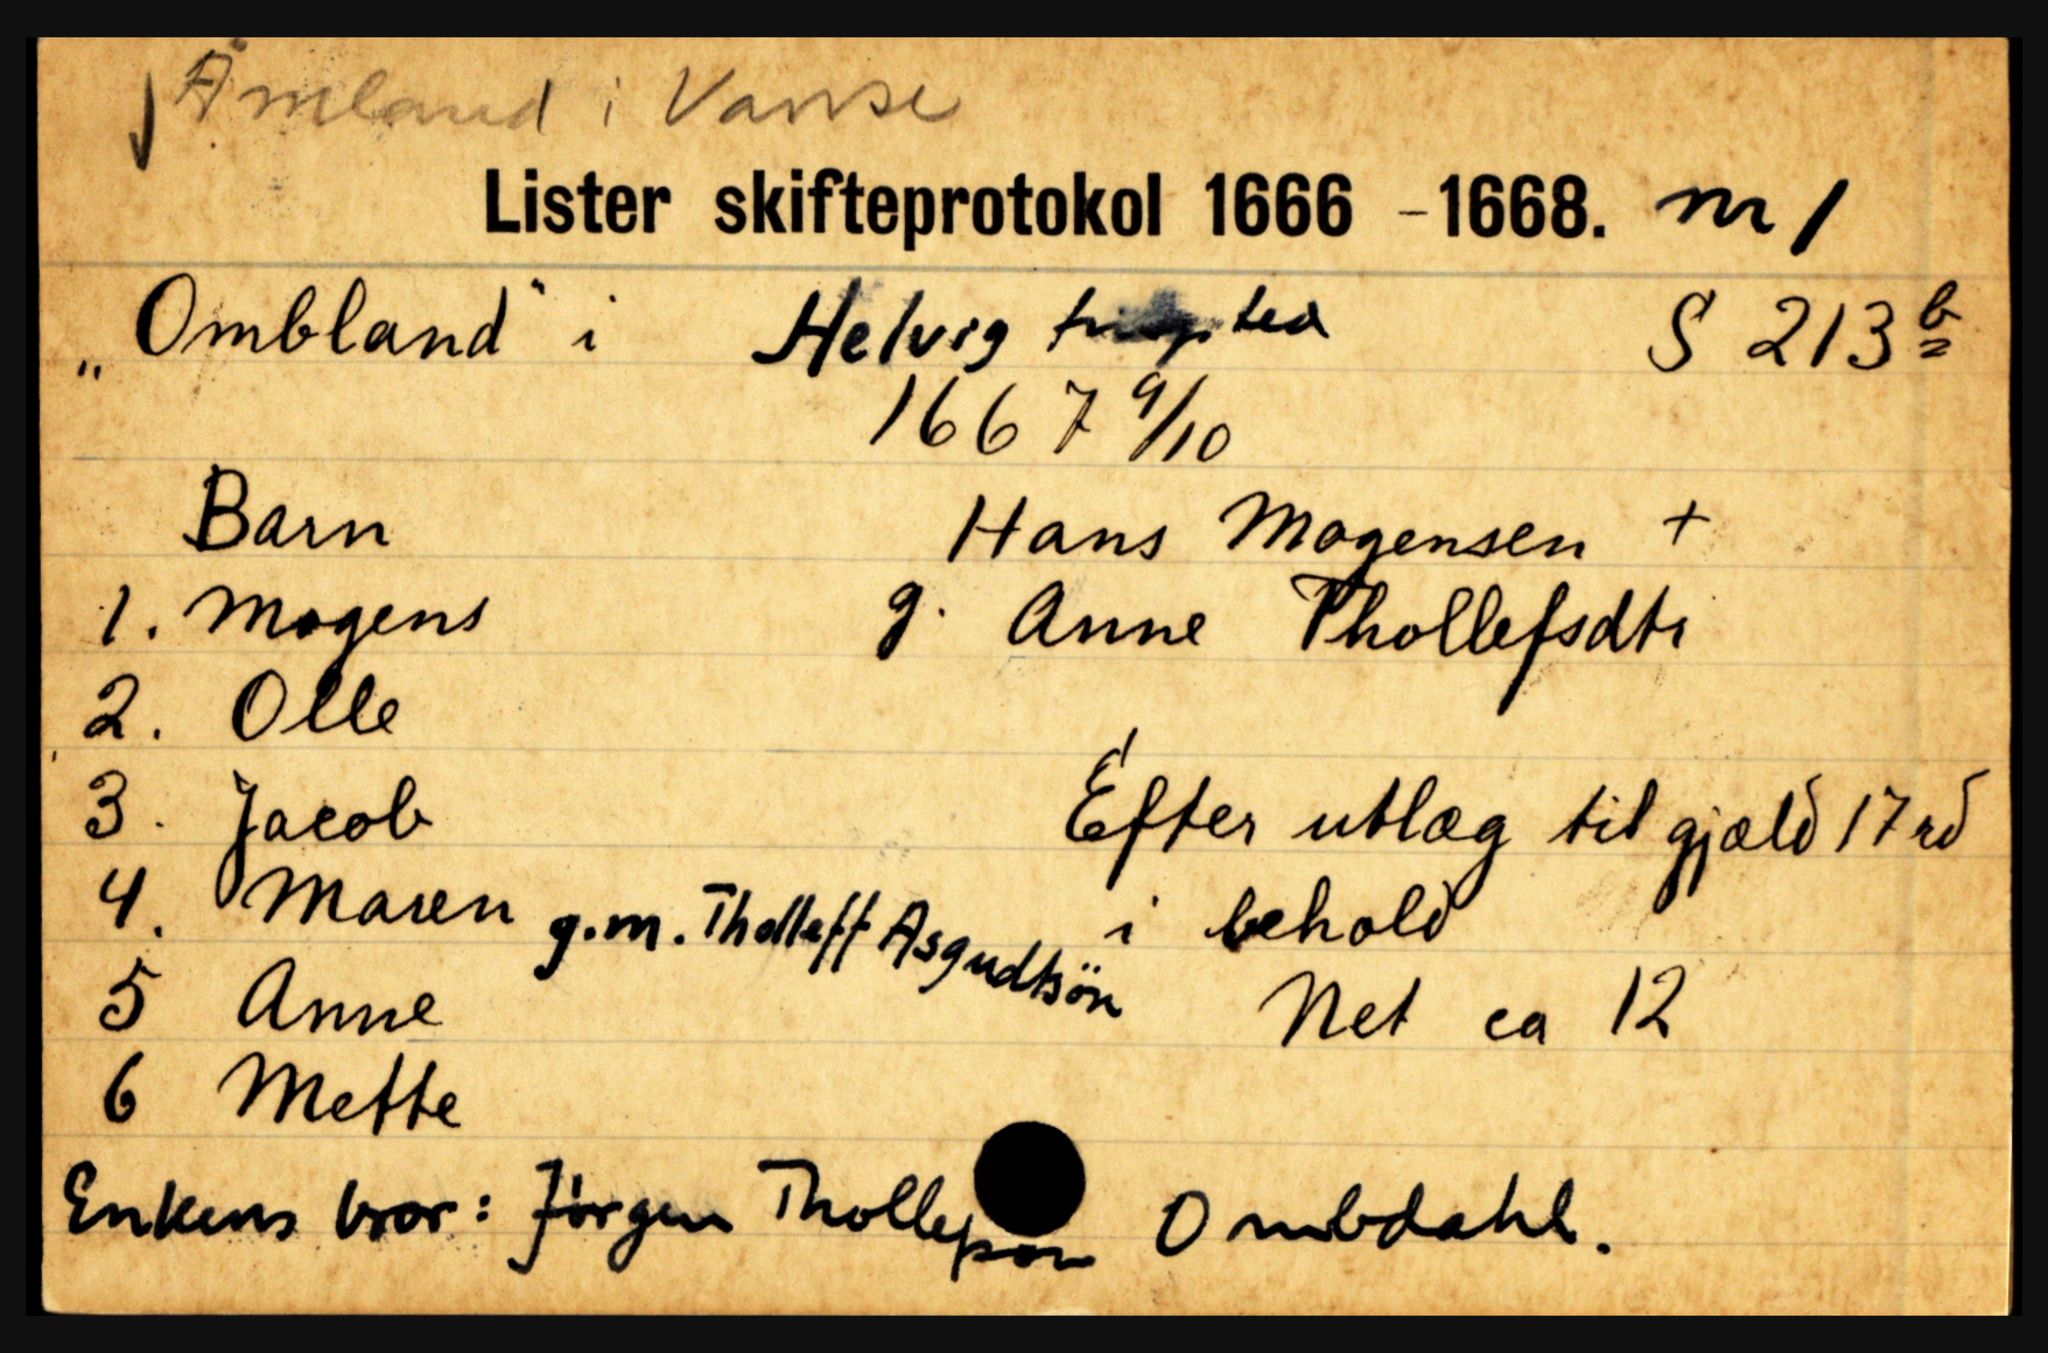 Åmland i Vanse
Lister skifteprotokol 1666 - 1668. nr 1
„Ombland" i Helvig S 213 b
1667 9/10
Barn Hans Mogensen +
1. Mogens g. Anne Thollefsdtr
2. Olle
3. Jacob Efter utlæg til gjæld 17 rd
4. Maren g.m. Tholleff Asgudtsön i behold
5 Anne Net ca 12
6 Mette
Enkens bror: Jørgen Ombdahl.